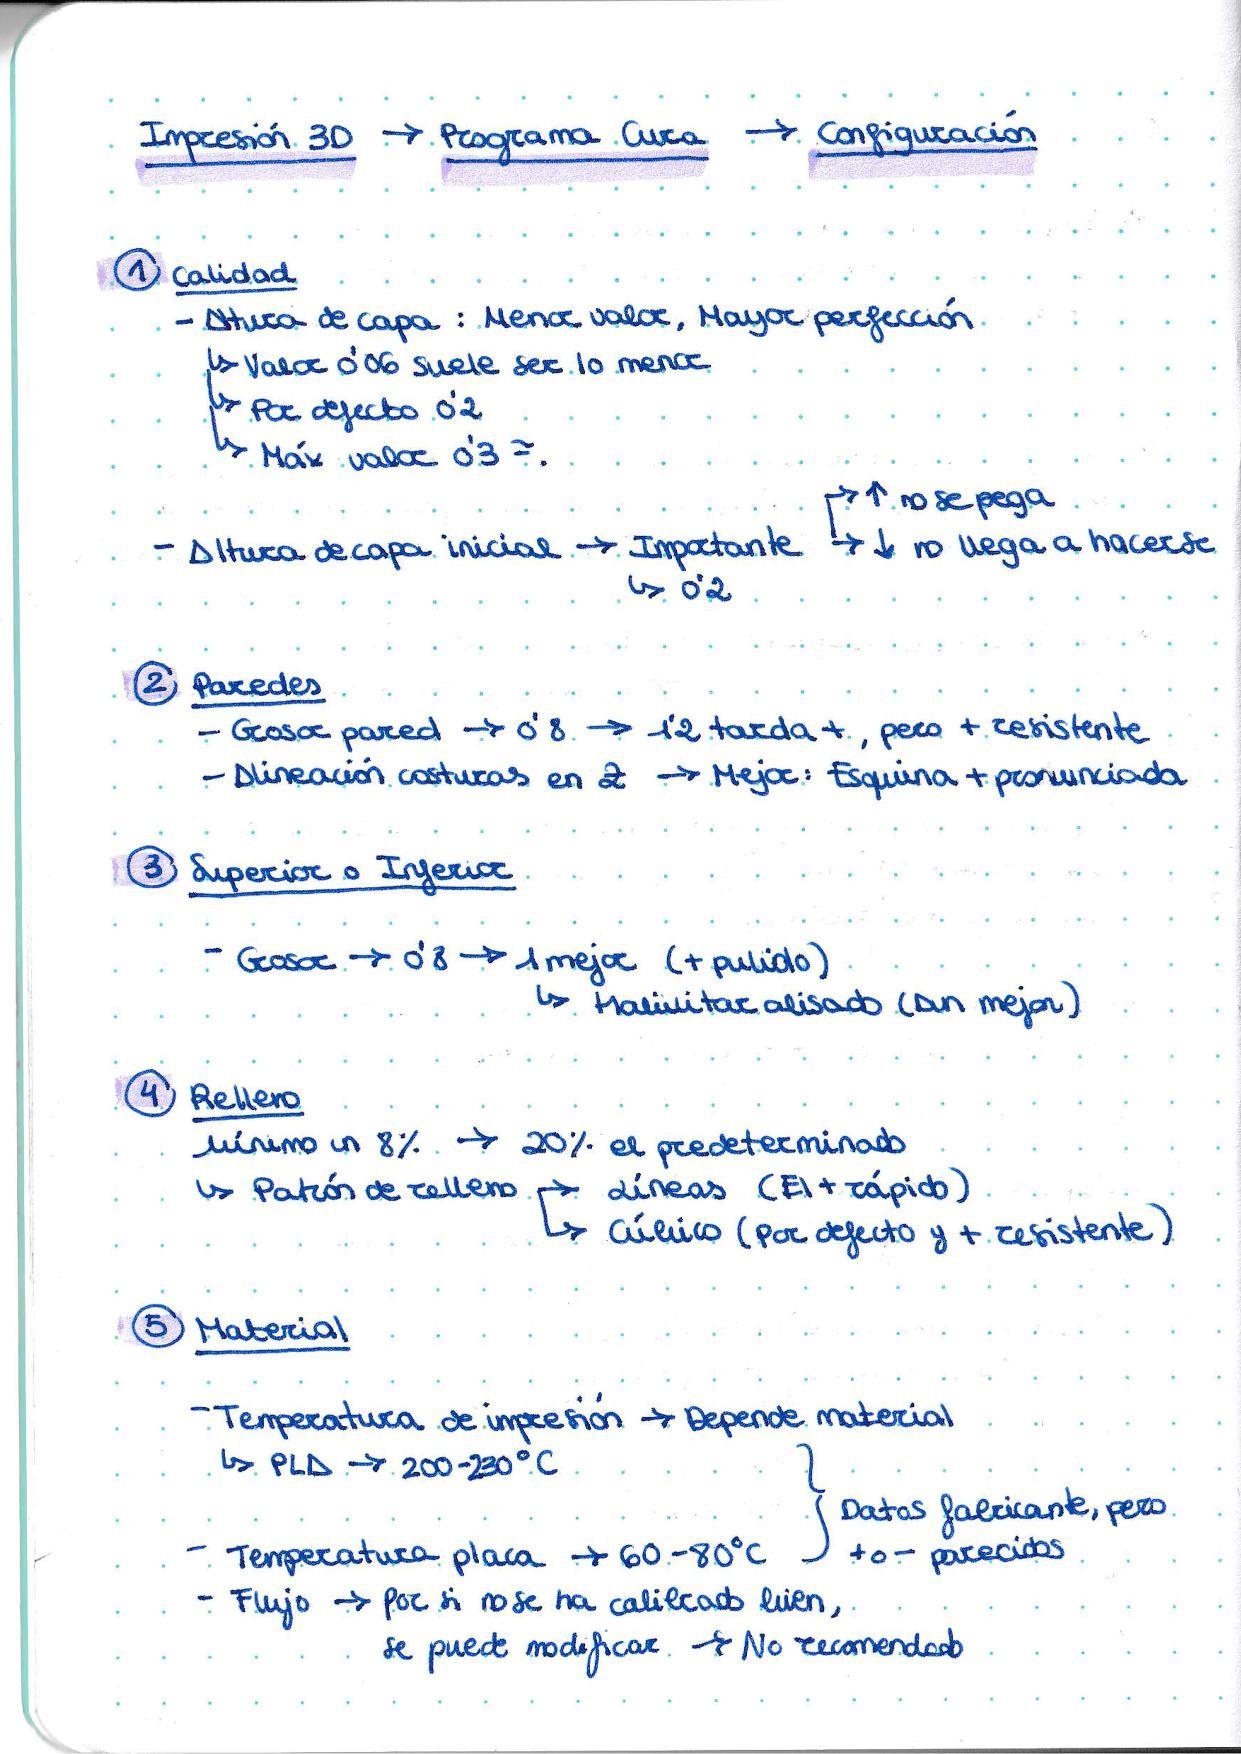 Impresión 3D → Programa Cura → Configuración
① Calidad
- Altura de capa : Menor valor, Mayor perfección
↳ Valor 0'06 suele ser lo menor
↳ Por defecto 0'2
↳ Máx valor 0'3 ≃.
→ ↑ no se pega
- Altura de capa inicial → Importante → ↓ no llega a hacerse
↳ 0'2
② Paredes
- Grosor pared → 0'8 → 1'2 tarda +, pero + resistente
- Alineación costuras en Z → Mejor: Esquina + pronunciada
③ Superior o Inferior
- Grosor → 0'8 → 1 mejor (+ pulido)
↳ Habilitar alisado (aun mejor)
④ Relleno
Mínimo un 8% → 20% el predeterminado
↳ Patrón de relleno → Líneas (El + rápido)
↳ Cúbico (Por defecto y + resistente)
⑤ Material
- Temperatura de impresión → Depende material
↳ PLA → 200-230°C
Datos fabricante, pero
- Temperatura placa → 60-80°C } + o - parecidos
- Flujo → Por si no se ha calibrado bien,
se puede modificar → No recomendado